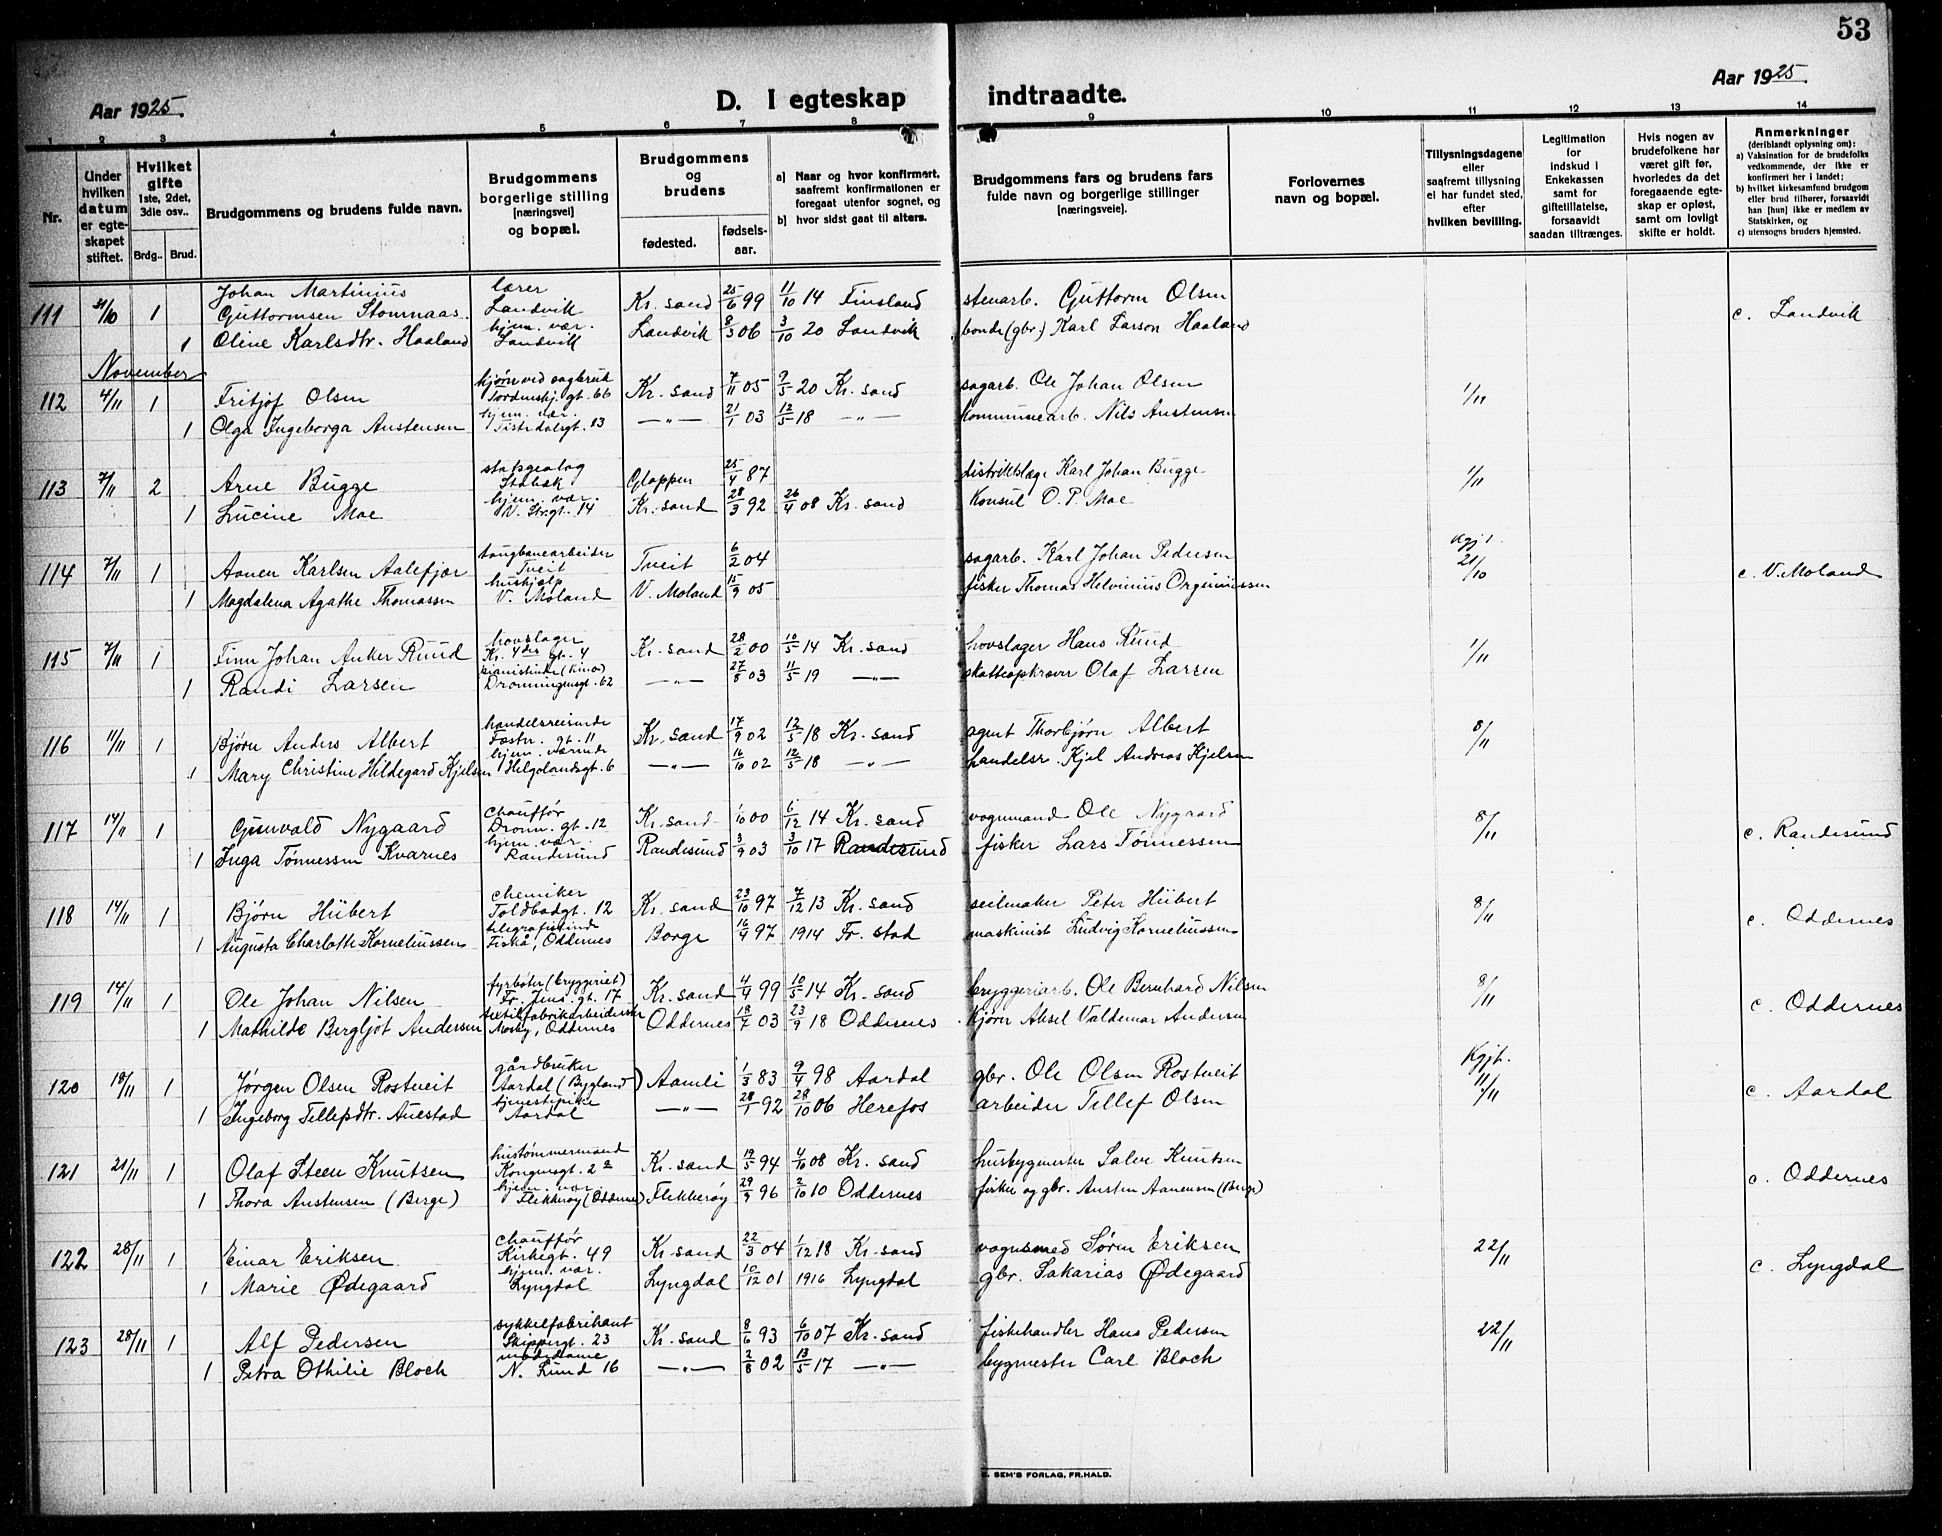 53
Aar 1925.
D. I egteskap
indtraadte.
Aar 1925.
1 2 3 4 5 6 7 8 9 10 11 12 13 14
Nr.
Under hvilken datum er egte-skapet stiftet.
Hvilket gifte 1ste, 2det, 3die osv..
Brdg.. Brud.
Brudgommens og brudens fulde navn.
Brudgommens borgerlige stilling [næringsvei] og bopæl.
Brudgommens og brudens
fødested.
fødsels-aar.
a) Naar og hvor konfirmert, saafremt konfirmationen er foregaat utenfor sognet, og
b) hvor sidst gaat til alters.
Brudgommens fars og brudens fars fulde navn og borgerlige stillinger [næringsveie].
Forlovernes navn og bopæl.
Tillysningsdagene eller saafremt tillysning ei har fundet sted, efter hvilken bevilling.
Legitimation for indskud i Enkekassen samt for giftetillatelse, forsaavidt saadan tiltrænges.
Hvis nogen av brudefolkene har været gift før, hvorledes da det foregaaende egte-skap er opløst, samt om lovligt skifte er holdt.
Anmerkninger (deriblandt oplysning om):
a) Vaksination for de brudefolks vedkommende, der ikke er konfirmert her i landet;
b) hvilket kirkesamfund brudgom eller brud tilhører, forsaavidt han [hun] ikke er medlem av Statskirken, og
c) utensogns bruders hjemsted.
111 31/10 1 Johan Martinius Guttormsen Stomnaas. lærer Landvik Kr. sand 25/6 99 11/10 14 Finsland stenarb. Guttorm Olsen c. Landvik
1 Oline Karlsdtr. Haaland hjem. vær. Landvik Landvik 8/3 06 3/10 20 Landvik bonde (gbr.) Karl Larson Haaland
November
112 4/11 1 Fritjof Olsen kjører ved sagbruk Tordenskj. gt. 66 Kr. sand 7/11 05 9/5 20 Kr. sand sagarb. Ole Johan Olsen 1/11
1 Olga Ingeborga Austensen hjem. vær. Tistedalsgt. 13 —"— 21/1 03 12/5 18 —"— kommunearb. Nils Austensen
113 7/11 2 Arne Bugge statsgeolog Stabæk Gloppen 25/4 87 distriktslæge Karl Johan Bugge 1/11
1 Lucine Moe hjem. vær. V. Str.gt. 14 Kr. sand 28/3 92 26/4 08 Kr. sand Konsul O. P. Moe
114 7/11 1 Aanen Karlsen Aalefjær taugbanearbeider Tveit Tveit 6/2 04 sagarb. Karl Johan Pedersen 21/10 c. V. Moland
1 Magdalena Agathe Thomassen hushjelp V. Moland V. Moland 15/9 05 fisker Thomas Helvinius
115 7/11 1 Finn Johan Anker Ruud hovslager Kr. 4des gt. 4 Kr. sand 28/2 00 10/5 14 Kr. sand hovslager Hans Ruud 1/11
1 Randi Larsen pianistinde (kino) Dronningensgt. 62 —"— 27/8 03 11/5 19 —"— skatteopkræver Olaf Larsen
116 11/11 1 Bjørn Anders Albert handelsreisende Fæstn. gt. 11 Kr. sand 17/9 02 12/5 18 Kr. sand agent Thorbjørn Albert 8/11
1 Mary Christine Hildegard Kjelsen hjem. værende Helgolandsgt. 6 —"— 16/10 02 12/5 18 —"— handelsr. Kjel Andreas Kjelsen
117 14/11 1 Gunvald Nygaard chauffør Dronn. gt. 12 Kr. sand 1/10 00 6/12 14 Kr. sand vognmand Ole Nygaard 8/11 c. Randesund
1 Inga Tønnessen Kvarnes hjem. vær. Randesund Randesund 3/9 03 3/10 17 Randesund fisker Lars Tønnessen
118 14/11 1 Bjørn Hübert chemiker Toldbodgt. 12 Kr. sand 23/10 97 7/12 13 Kr. sand seilmaker Peter Hübert 8/11 c. Oddernes
1 Augusta Charlotte Korneliussen telegrafistinde Fiskå, Oddernes Borge 16/4 97 1914 Fr. stad maskinist Ludvig Korneliussen
119 14/11 1 Ole Johan Nilsen fyrbøter (bryggeriet) Fr. Jens. gt. 17 Kr. sand 4/4 99 10/5 14 Kr. sand bryggeriarb. Ole Bernhard Nilsen 8/11 c. Oddernes
1 Mathilde Bergljot Andersen tekstilfabrikarbeiderske Mosby, Oddernes Oddernes 18/7 03 23/9 18 Oddernes kjører Aksel Valdemar Andersen
120 18/11 1 Jørgen Olsen Rostveit gårdbruker Aardal (Bygland) Aamli 1/3 83 9/4 98 Aardal gbr. Ole Olsen Rostveit Kgjt. 11/11 c. Aardal
1 Ingeborg Tellefsdtr. Auestad tjenestepike Aardal —"— 28/1 92 28/10 06 Herefos arbeider Tellef Olsen
121 21/11 1 Olaf Steen Knutsen hustømmermand Kongensgt. 2 Kr. sand 19/5 94 4/10 08 Kr. sand husbygmester Salve Knutsen c. Oddernes
1 Thora Austensen (Berge) hjem. vær. Flekkerøy (Oddernes) Flekkerøy 29/9 96 2/10 10 Oddernes fisker og gbr. Austen Aanensen (Berge)
122 28/11 1 Einar Eriksen chauffør Kirkegt. 49 Kr. sand 22/3 04 1/12 18 Kr. sand vognsmed Søren Eriksen 22/11 c. Lyngdal
1 Marie Ødegaard hjem. vær. Lyngdal Lyngdal 10/12 01 1916 Lyngdal gbr. Sakarias Ødegaard
123 28/11 1 Alf Pedersen sykkelfabrikant Skippergt. 23 Kr. sand 8/6 93 6/10 07 Kr. sand fiskehandler Hans Pedersen 22/11
1 Petra Othilie Bloch modedame N. Lund 16 —"— 2/8 02 13/5 17 —"— bygmester Carl Bloch
SEM'S FORLAG, FR.HALD.